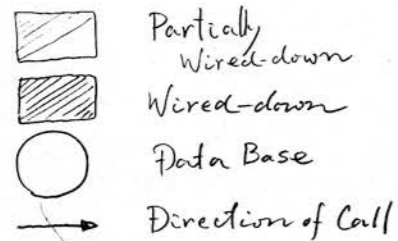 Partially
Wired-down
Wired-down
Data Base
Direction of Call